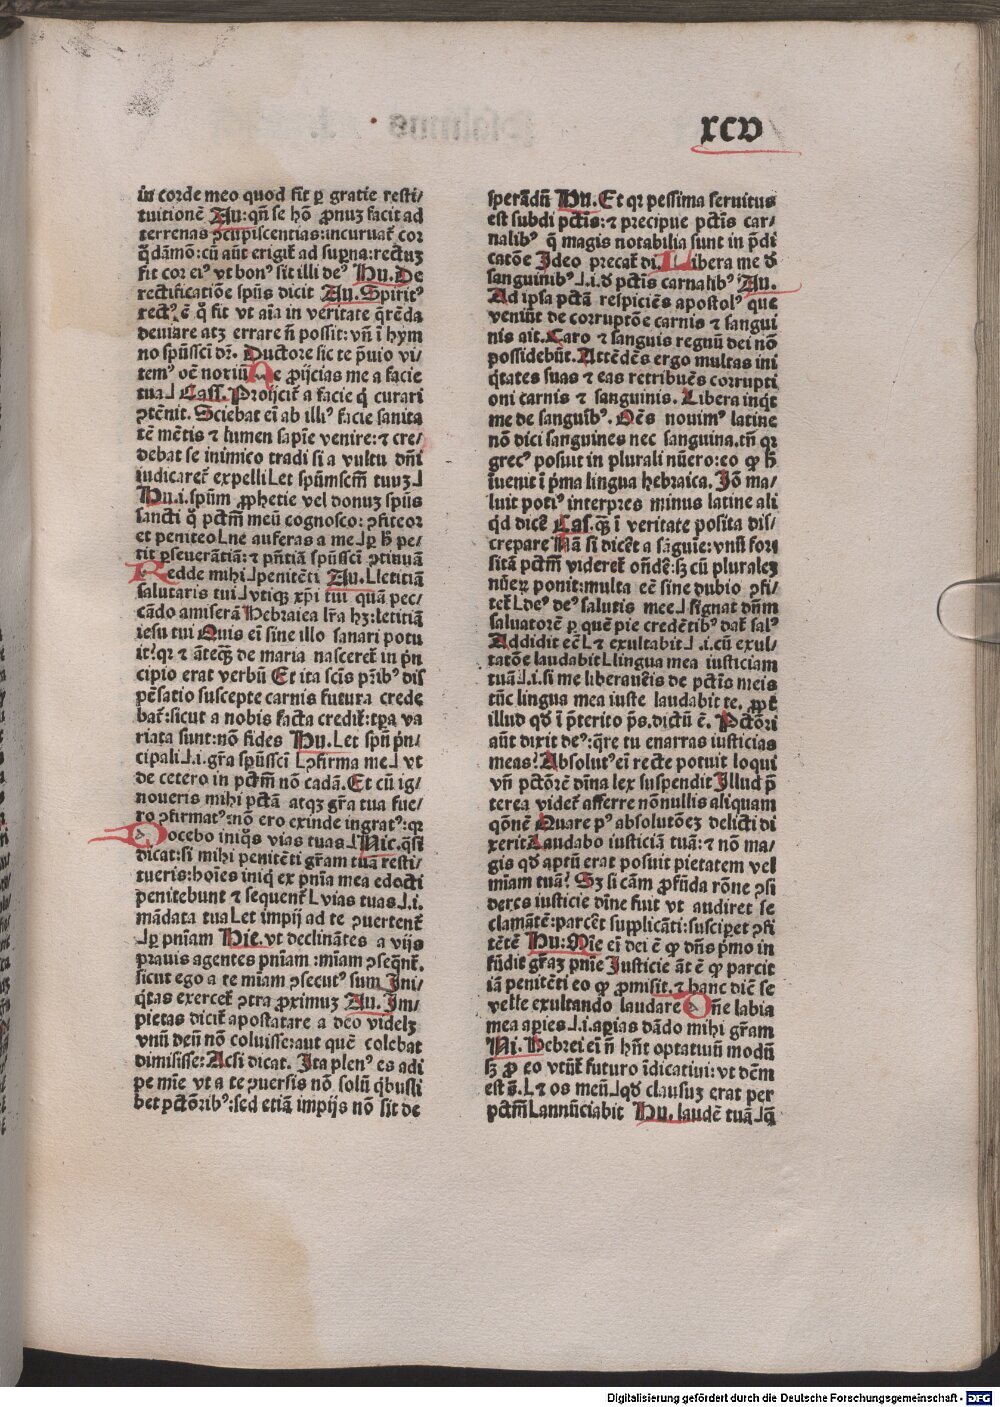 xcv
in corde meo quod fit ꝑ gratie resti⸗
tuitionē Au: qn̄ se hō ꝓnuꝫ facit ad
terrenas ꝯcupiscentias: incuruat̄ cor
q̇dāmō: cū aūt erigit̄ ad suꝑna: rectuꝫ
fit cor ei⁹ vt bon⁹ sit illi de⁹ Hu. De
rectificatiōe spūs dicit Au. Spirit⁹
rect⁹ ē q̇ fit vt aīa in veritate q̄rēda
deuiare atꝫ errare n̄ possit: vn̄ ī hym
no spūssci dr̄. Ductore sic te p̄uio vi⸗
tem⁹ oē noxiū Ne ꝓijcias me a facie
tua⅃ Cass. Proijcit̄ a facie q̇ curari
ꝯtēnit. Sciebat eī ab illi⁹ facie sanita
tē mētis ⁊ lumen sapīe venire: ⁊ cre⸗
debat se inimico tradi si a vultu dn̄i
iudicaret̄ expelli Let spūmscm̄ tuuꝫ⅃
Hu. i. spūm ꝓphetie vel donuꝫ spūs
sancti q̇ pctm̄ meū cognosco: ꝯfiteor
et peniteo Lne auferas a me⅃ ꝑ h̄ pe⸗
tit ꝑseuerātiā: ⁊ pn̄tiā spūssci ꝯtinuā
Redde mihi⅃ penitēti Au. Lletitiā
salutaris tui⅃ vtiqꝫ xp̄i tui quā pec⸗
cādo amiserā Hebraica lr̄a hꝫ: letitiā
iesu tui Quis eī sine illo sanari potu
it? qꝛ ⁊ āteqꝫ de maria nasceret̄ in p̄n
cipio erat verbū Et ita scīs pr̄ib⁹ dis
pēsatio suscepte carnis futura crede
bat̄: sicut a nobis facta credit̄: tꝑa va
riata sunt: nō fides Hu. Let spū p̄n⸗
cipali⅃ .i. gr̄a spūssci Lꝯfirma me⅃ vt
de cetero in pctm̄ nō cadā. Et cū ig⸗
noueris mihi pctā atqꝫ gr̄a tua fue⸗
ro ꝯfirmat⁹: nō ero exinde ingrat⁹: qꝛ
Docebo iniq̇s vias tuas⅃ Hie. q̄si
dicat: si mihi penitēti gr̄am tuā resti⸗
tueris: hoīes iniq̇ ex pnīa mea edocti
penitebunt ⁊ sequent̄ L vias tuas⅃ .i.
mādata tua Let impij ad te ꝯuertent̄
⅃ꝑ pnīam Hie. vt declinātes a vijs
prauis agentes pnīam: mīam ꝯseqn̄t̄.
sicut ego a te mīam ꝯsecut⁹ sum Ini⸗
q̇tas exercet̄ ꝯtra ꝓximuꝫ Au. Im⸗
pietas dicit̄ apostatare a deo videlꝫ
vnū deū nō coluisse: aut quē colebat
dimisisse: Acsi dicat. Ita plen⁹ es adi
pe mīe vt a te ꝯuersis nō solū q̇busli
bet pctōrib⁹: sed etiā impijs nō sit de
sperādū Hu. Et qꝛ pessima seruitus
est subdi pctīs: ⁊ precipue pctīs car⸗
nalib⁹ q̄ magis notabilia sunt in p̄di
catōe Ideo precat̄ di. Libera me ď
sanguinib⁹ ⅃ .i. ď pctīs carnalib⁹ Au.
Ad ipsa pctā respiciēs apostol⁹ que
veniūt de corruptōe carnis ⁊ sangui
nis ait. Caro ⁊ sanguis regnū dei nō
possidebūt. Attēdēs ergo multas ini
q̇tates suas ⁊ eas retribuēs corrupti
oni carnis ⁊ sanguinis. Libera inq̇t
me de sanguīb⁹. Oēs nouim⁹ latine
nō dici sanguines nec sanguina. tn̄ qꝛ
grec⁹ posuit in plurali nūero: eo ꝙ h̄
īuenit ī p̄ma lingua hebraica. Iō ma⸗
luit poti⁹ interpres minus latine ali
q̇d dicē Cas. qꝫ ī veritate posita dis⸗
crepare Nā si dicēt a sāguīe: vnū forſ
sitā pctm̄ videret̄ ondē: sꝫ cū pluraleꝫ
nūeꝝ ponit: multa eē sine dubio ꝯfi⸗
tet̄ Lde⁹ de⁹ salutis mee⅃ signat dn̄m
saluatorē ꝑ quē pie credētib⁹ dat̄ sal⁹
Addidit eē L⁊ exultabit⅃ .i. cū exul⸗
tatōe laudabit Llingua mea iusticiam
tuā⅃ .i. si me liberaueīs de pctīs meis
tūc lingua mea iuste laudabit te. ꝓpt̄
illud qď ī p̄terito ps̄. dictū ē. Pctōri
aūt dixit de⁹: q̄re tu enarras iusticias
meas? Absolut⁹ eī recte potuit loqui
vn̄ pctōrē dīna lex suspendit Illud p̄
terea videt̄ afferre nōnullis aliquam
qōnē Quare p⁹ absolutōeꝫ delicti di
xerit Laudabo iusticiā tuā: ⁊ nō ma⸗
gis qď aptū erat posuit pietatem vel
mīam tuā? Sꝫ si cām ꝓfūda rōne ꝯsi
deres iusticie dīne fuit vt audiret se
clamātē: parcēt supplicāti: susciꝑet ꝯfi
tētē Hu: Mīe eī dei ē ꝙ dn̄s p̄mo in
fūdit gr̄aꝫ pnīe Iusticie āt ē ꝙ parcit
iā penitēti eo ꝙ ꝓmisit. ⁊ hanc diē se
velle exultando laudare Dn̄e labia
mea aꝑies⅃ .i. aꝑias dādo mihi gr̄am
Ni. Hebrei eī n̄ hn̄t optatiuū modū
sꝫ ꝓ eo vtūt̄ futuro īdicatiui: vt dēm
est s̄. L⁊ os meū⅃ qď clausuꝫ erat per
pctm̄ Lannūciabit Hu. laudē tuā⅃ q̄
Digitalisierung gefördert durch die Deutsche Forschungsgemeinschaft - DFG